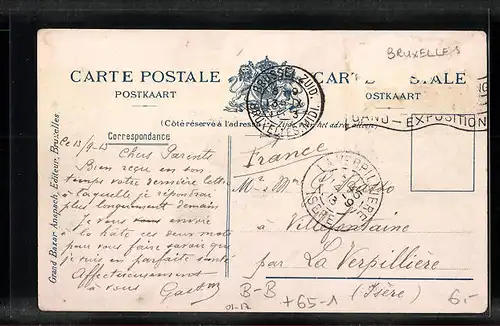 BRUXELLES
CARTE POSTALE CARTE POSTALE
POSTKAART POSTKAART
BRUSSEL ZUID
BRUXELLES MIDI
GAND - EXPOSITION
(Côté réservé à l'adresse
Correspondance
Ce 13/9-13
Chers Parents
Bien reçu en son
temps votre dernière lettre
à laquelle je répondrai
plus longuement demain.
Je vous envoie
à la hâte ces deux mots
pour vous faire savoir que
je suis en parfaite santé
Affectueusement
à vous Gaston
France
LA VERPILLIERE
ISERE
Mr & Mme
à Villefontaine
par La Verpilliere
(Isère)
Grand Bazar Anspach, Editeur, Bruxelles
B-B
+65-1
6.-